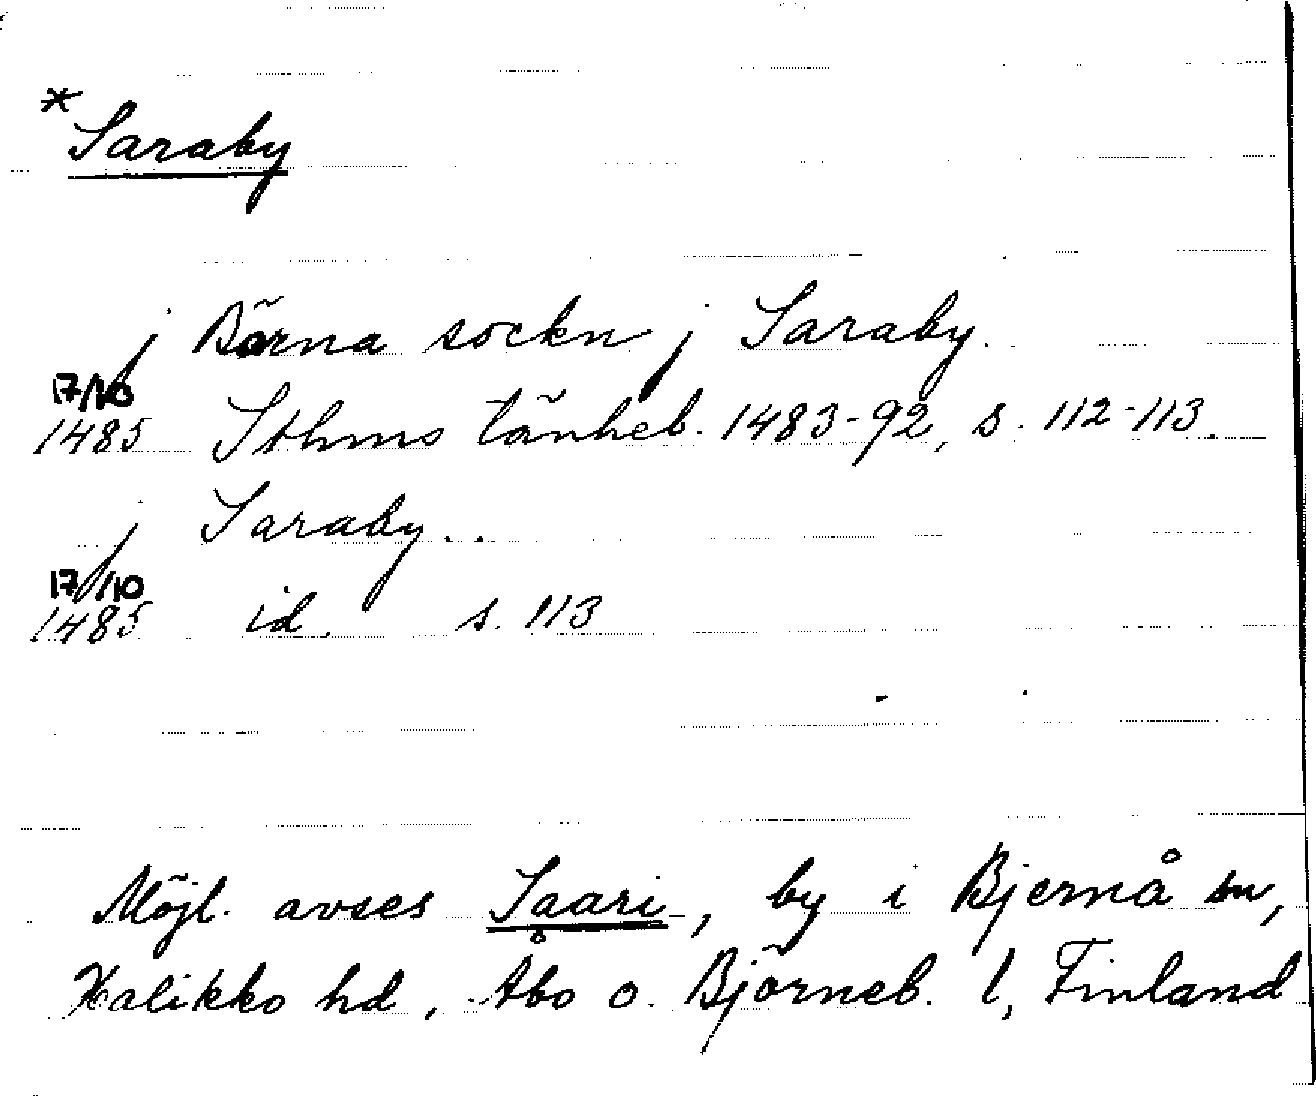 * Saraby
j Börna sockn j Saraby.
17/10
1485 Sthms tänkeb. 1483-92, s. 112-113.
j Saraby..
17/10
1485 id. s. 113
Möjl. avses Saari, by i Bjernå sn,
Halikko hd, Åbo o. Björneb. l, Finland